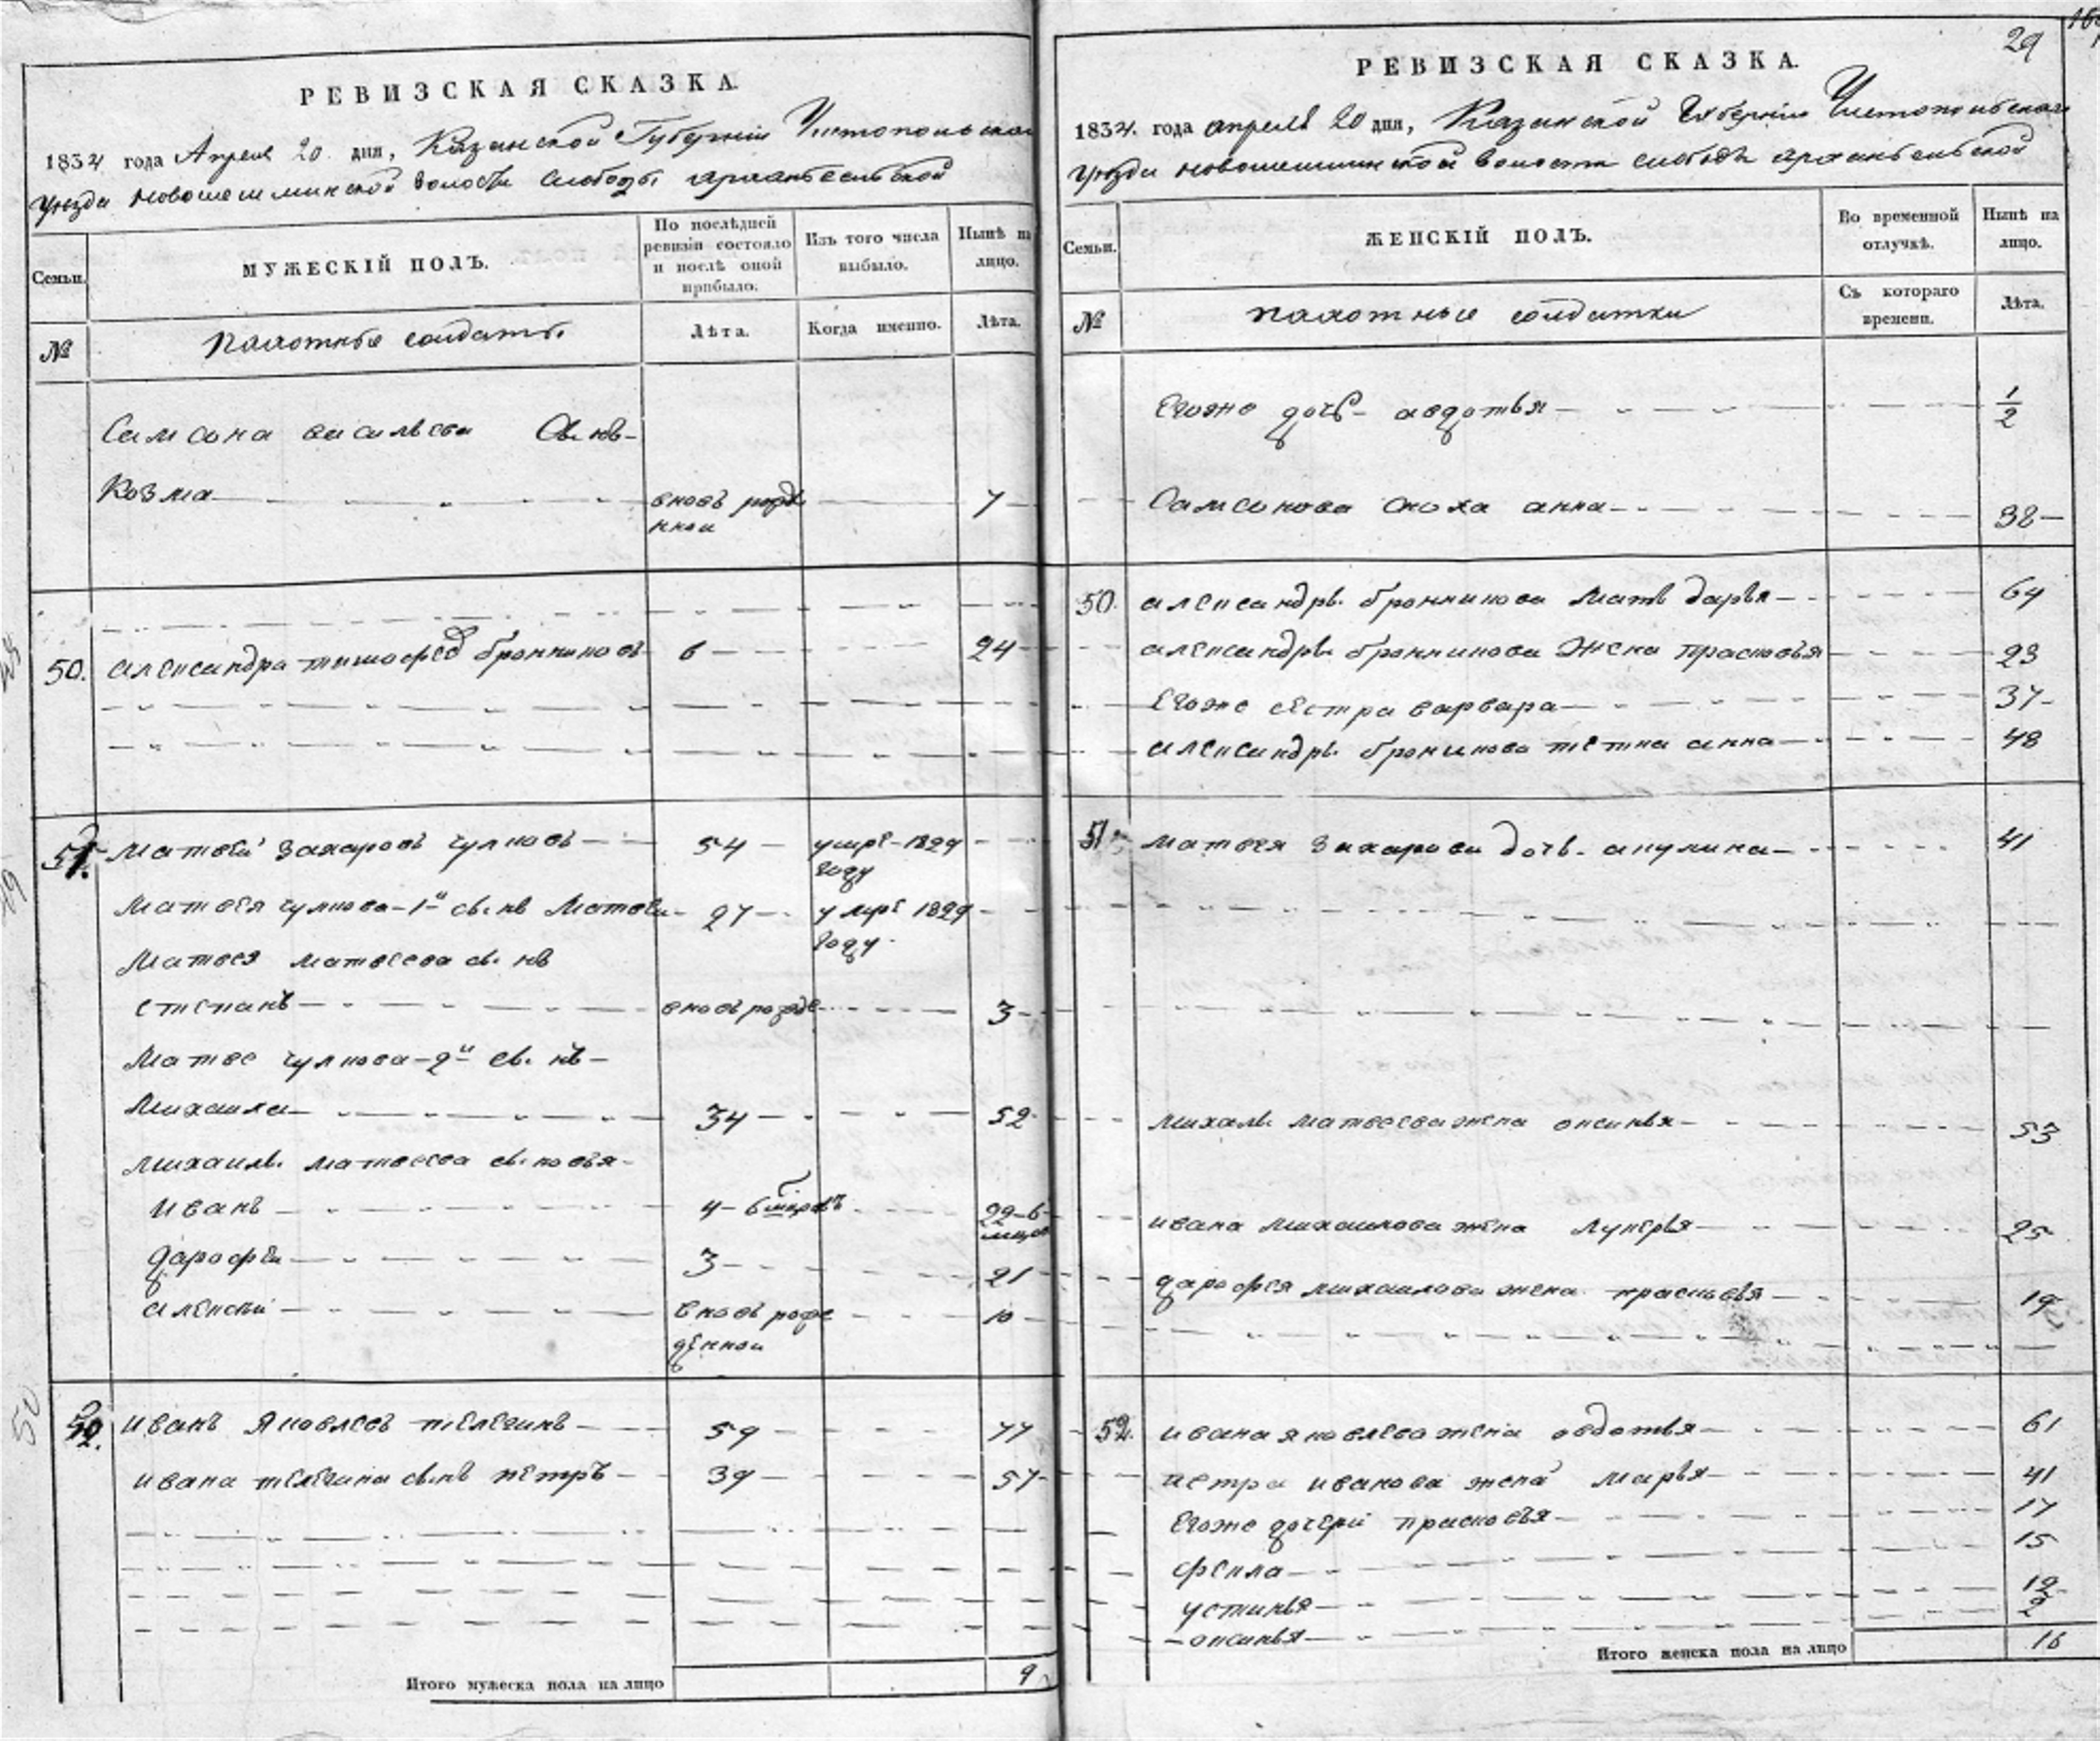 РЕВИЗСКАЯ СКАЗКА.
1834 года Апреля 20 дня, Казанской Губернiи Чистопольскаго
Уезда Новошешминской волости слободы Архангельской
Семьи.
МУЖЕСКIЙ ПОЛЪ.
По послѣдней ревизiи состояло и послѣ оной прибыло.
Изъ того числа выбыло.
Нынѣ на лицо.
№
пахотные солдаты.
Лѣта.
Когда именно.
Лѣта.
Самсона васильева сынъ
Козма вновь рожденной 7
50. александра тимофеев бронниковъ 6 24
51. матвей захаровъ чулковъ 54 умре 1829 году
матвея чулкова 1й сынъ матвей 27 умре 1829 году
матвея матвеева сынъ
степанъ вновь рожде 3
матве чулкова 2й сынъ
михаила 34 52
михаилы матвеева сыновья
иванъ 4 6 22 6
дарофеи 3 21
алексеи вновь рожденнои 10
52. иванъ яковлевъ телегинъ 59 77
ивана телегина сынъ петръ 39 57
Итого мужеска пола на лицо 9
29
РЕВИЗСКАЯ СКАЗКА.
1834. года апреля 20 дня, Казанской Губернiи Чистопольскаго
Уезда новошешминской волости слободы архангельской
Семьи.
ЖЕНСКIЙ ПОЛЪ.
Во временной отлучкѣ.
Нынѣ на лицо.
№
пахотные солдатки
Съ котораго времени.
Лѣта.
Егоже дочь авдотья 1/2
Самсонова сноха анна 38
50. александры бронникова мать дарья 64
александры бронникова жена прасковья 23
Егоже сестра варвара 37
александры броникова тетка анна 48
51 матвея захарова дочь акулина 41
михаилы матвеева жена оксинья 53
ивана михаилова жена лукерья 25
дарофея михаилова жена прасковья 19
52. ивана яковлева жена овдотья 61
петра иванова жена марья 41
Егоже дочери прасковья 17
фекла 15
устинья 12
оксинья 2
Итого женска пола на лицо 16